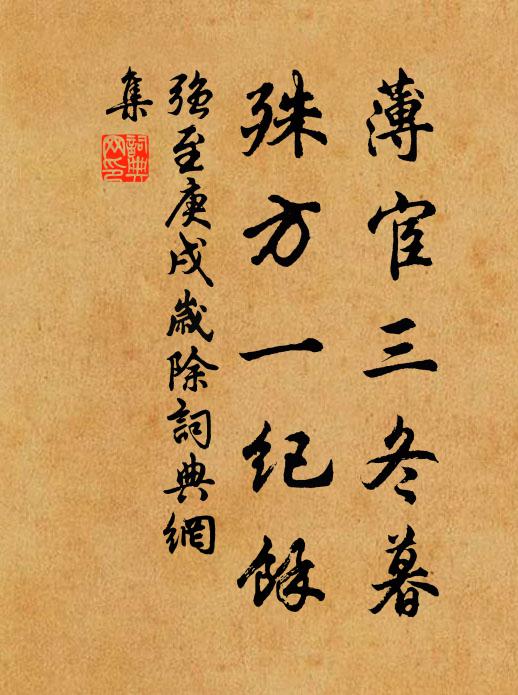 薄宦三冬暮
殊方一纪餘
強至庚戌歲除詞典網
集
詞典